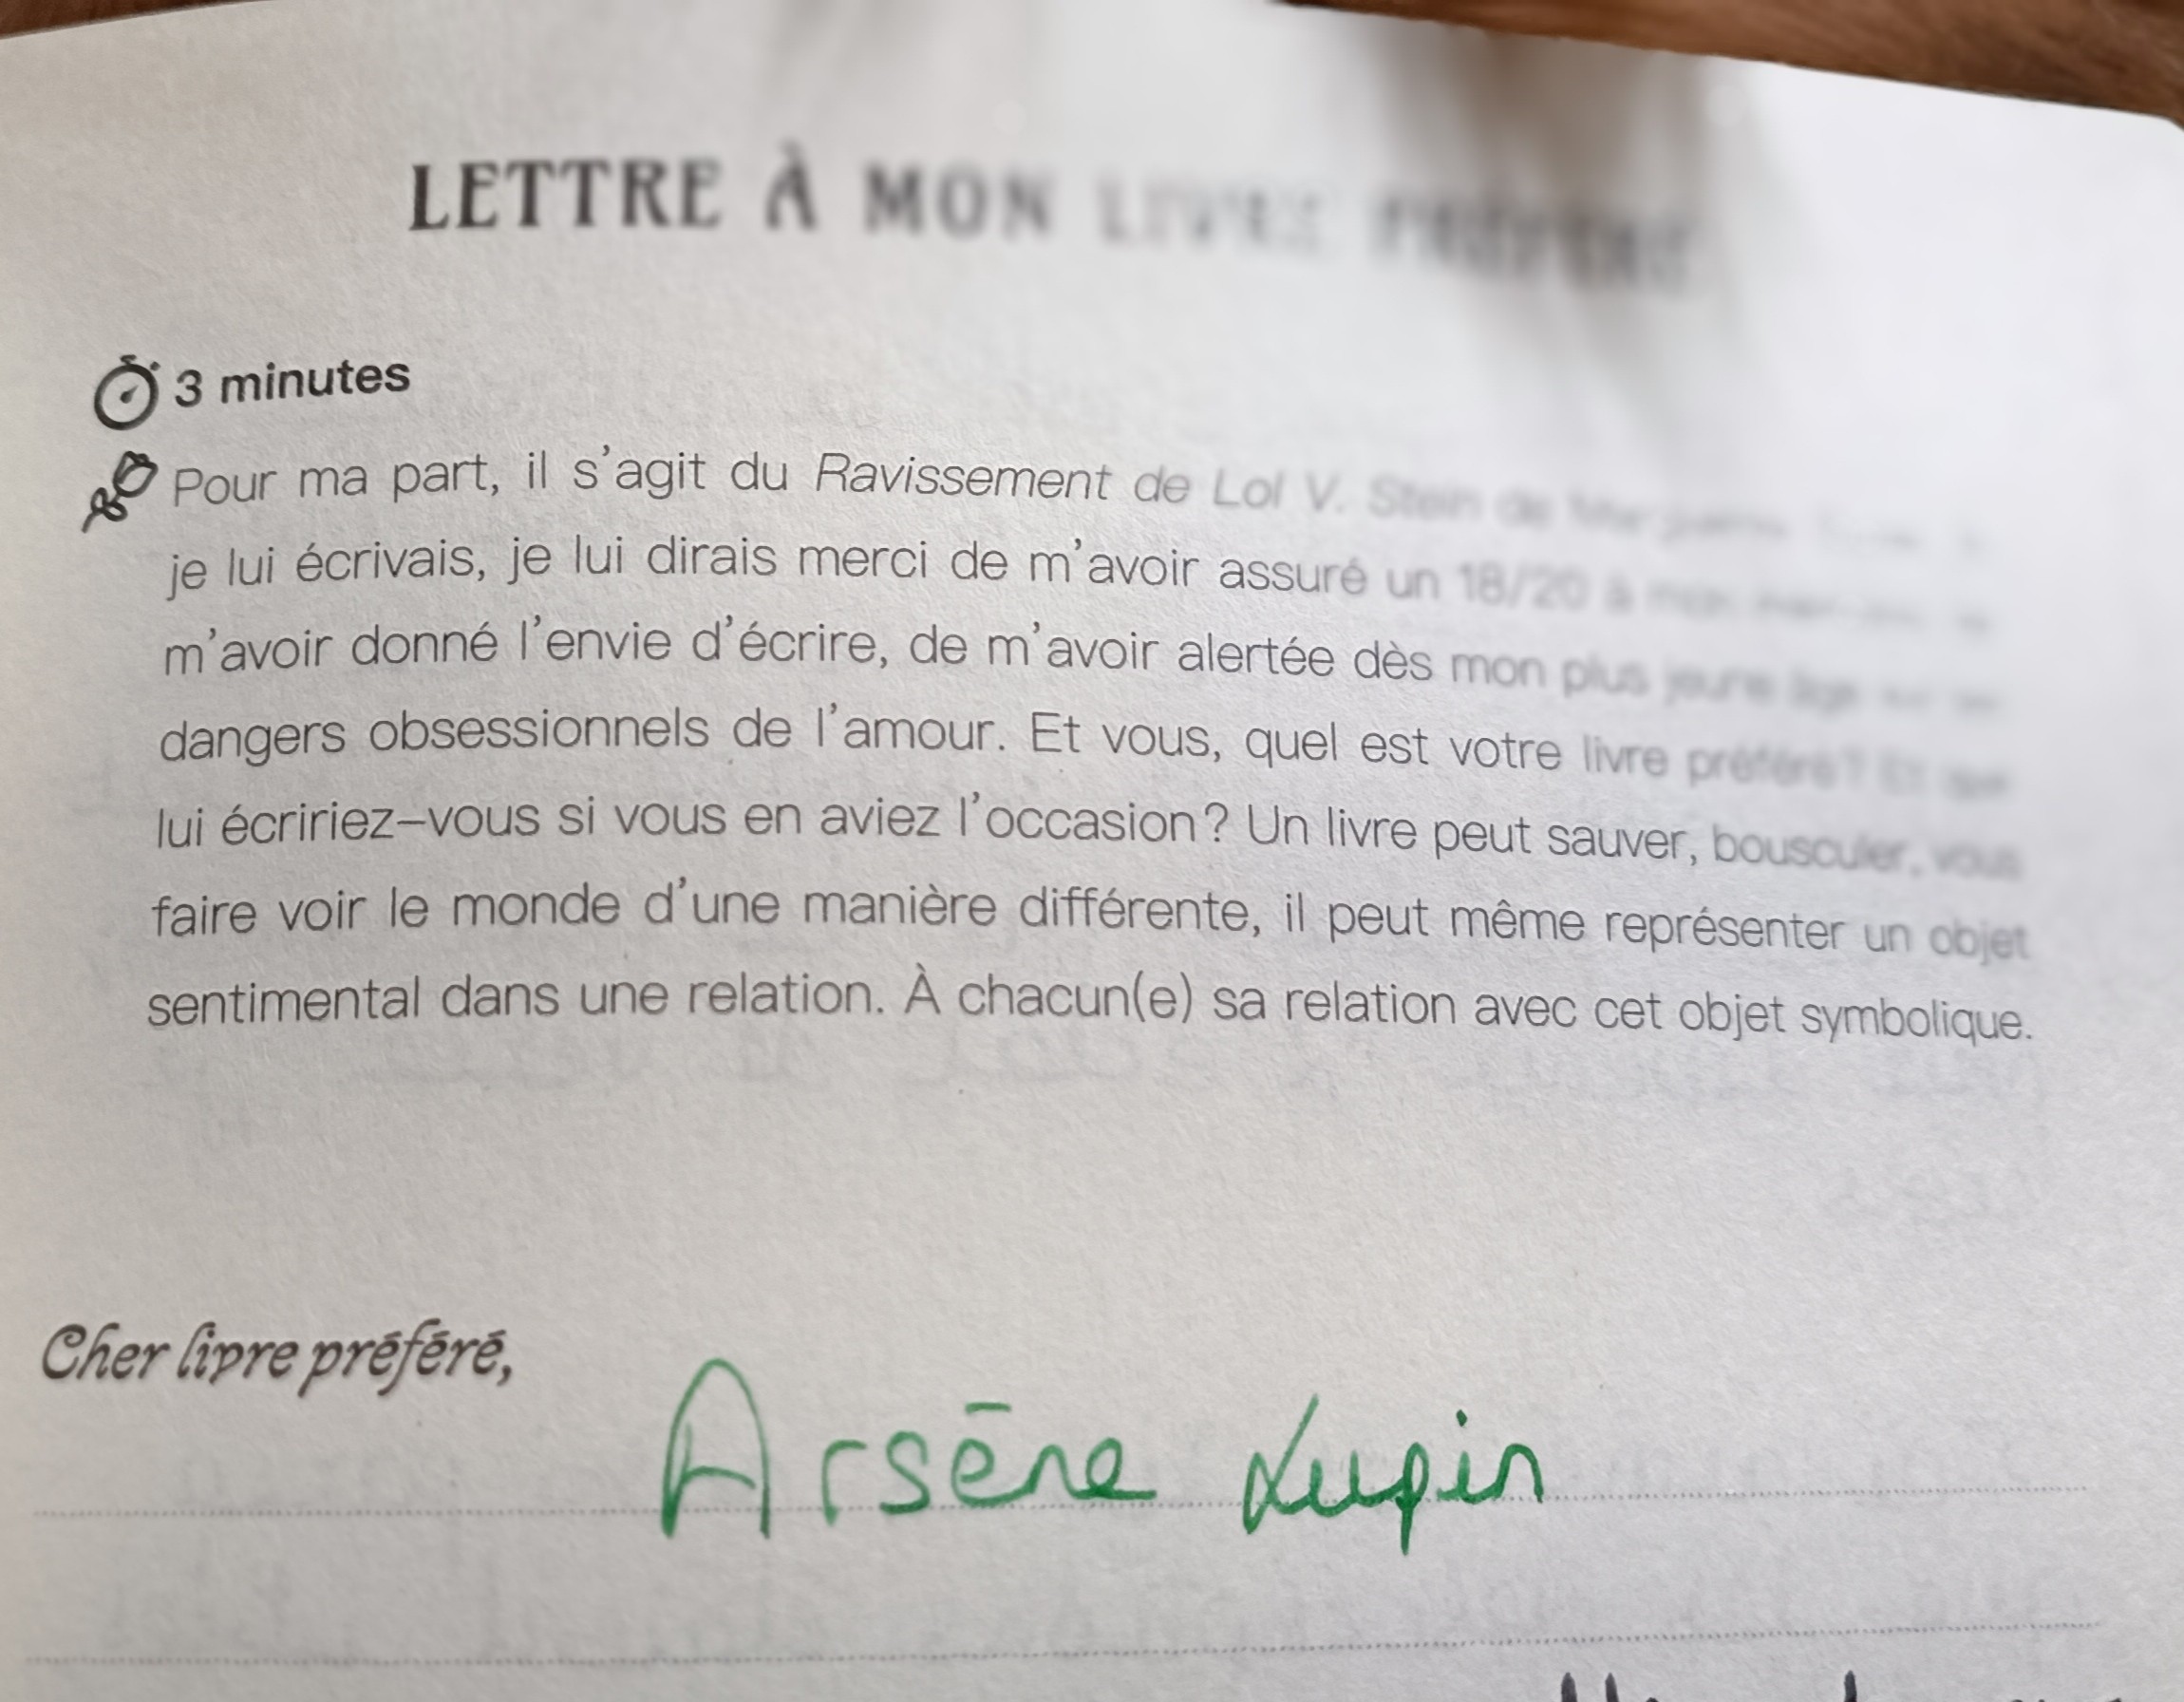 LETTRE À MON LIVRE PRÉFÉRÉ
3 minutes
Pour ma part, il s'agit du Ravissement de Lol V. Stein de Marguerite
je lui écrivais, je lui dirais merci de m'avoir assuré un 18/20 à mon
m'avoir donné l'envie d'écrire, de m'avoir alertée dès mon plus jeune âge
dangers obsessionnels de l'amour. Et vous, quel est votre livre préféré? Et que
lui écririez-vous si vous en aviez l'occasion? Un livre peut sauver, bousculer, vous
faire voir le monde d'une manière différente, il peut même représenter un objet
sentimental dans une relation. À chacun(e) sa relation avec cet objet symbolique.
Cher livre préféré,
Arsēne Lupin